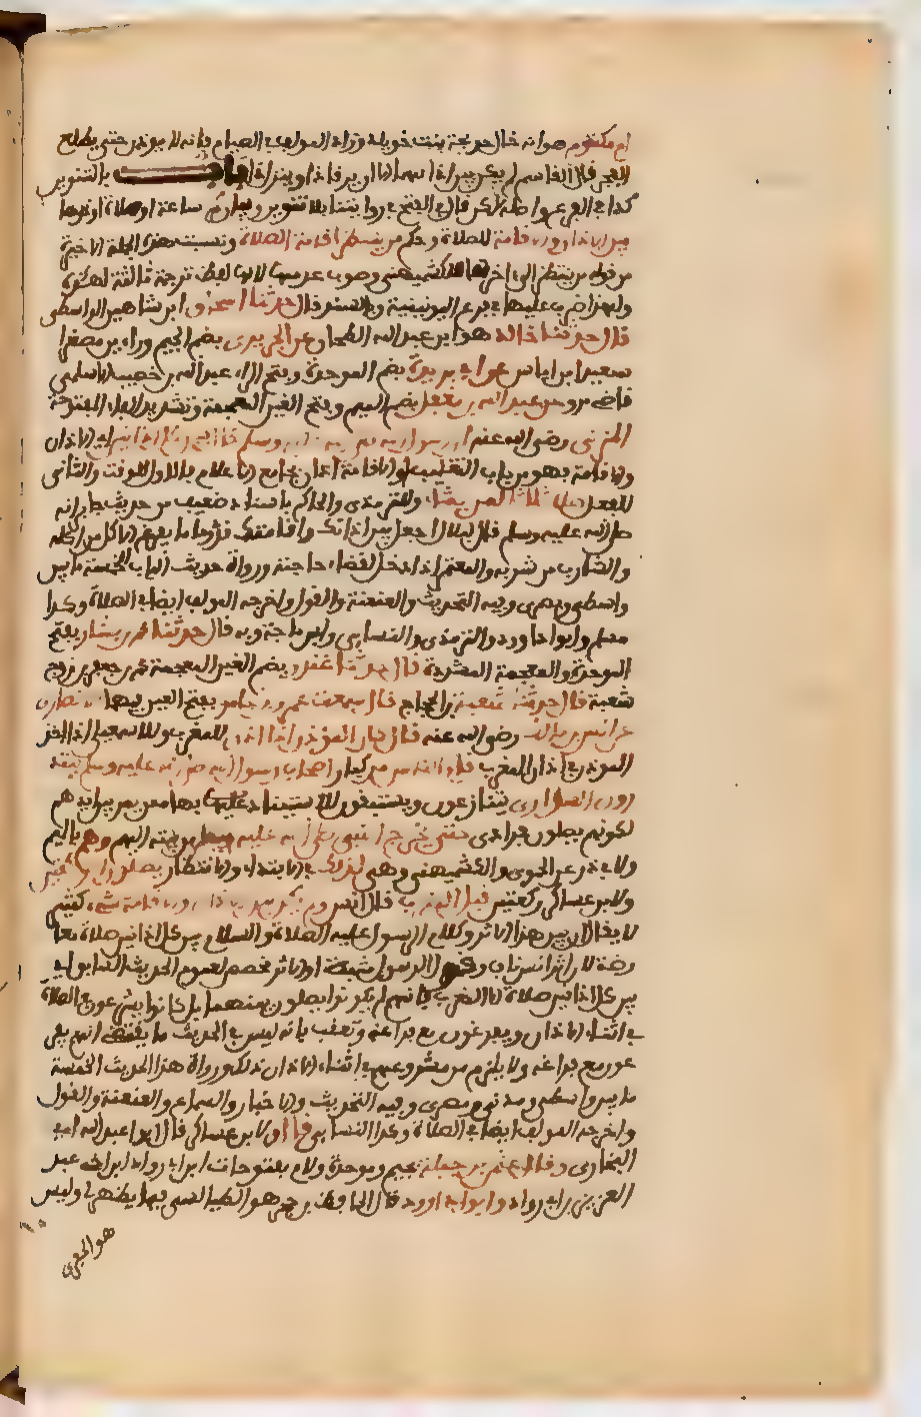 ام مكتوم هو ابن خال خديجة بنت خويلد وزاد المولف في الصيام فانه لا يوذن حتى يطلع
الفجر قال القاسم لم يكن بين اذانهما الا ان يرقى ذا وينزل ذا باب بالتنوين
كذا في الفرع واصله لكن قال في الفتح في روايتنا بلا تنوين وبيان كم ساعة او صلاة او نحوها
بين الاذان والاقامة للصلاة وحكم من ينتظر اقامة الصلاة ونسبت هذه الجملة الاخيرة
من قوله من ينتظر الى اخرها للكشميهني وصوب عدمها لانها لفظ ترجمة تالية لهذه
ولهذا ضرب عليها في فرع اليونينية وبالسند قال حدثنا اسحاق ابن شاهين الواسطي
قال حدثنا خالد هو ابن عبد الله الطحان عن الجريري بضم الجيم وراءين مصغرا
سعيد ابن اياس عن ابن بريدة بضم الموحدة وفتح الراء عبد الله بن حصيب الاسلمي
قاضي مرو عن عبد الله بن مغفل بضم الميم وفتح الغين المعجمة وتشديد الفاء المفتوحة
المزني رضي الله عنه ان رسول الله صلى الله عليه وسلم قال بين كل اذانين اي الاذان
والاقامة فهو من باب التغليب او الاقامة اذان بجامع الاعلام فالاول للوقت والثاني
للفعل صلاة ثلاثا لمن شاء وللترمذي والحاكم باسناد ضعيف من حديث جابر انه
صلى الله عليه وسلم قال لبلال اجعل بين اذانك واقامتك قدر ما يفرغ الاكل من اكله
والشارب من شربه والمعتصر اذا دخل لقضاء حاجته ورواة حديث الباب الخمسة ما بين
واسطي وبصري وفيه التحديث والعنعنة والقول واخرجه المولف ايضا في الصلاة وكذا
مسلم وابو داوود والترمذي والنساءي وابن ماجة وبه قال حدثنا محمد بن بشار بفتح
الموحدة والمعجمة المشددة قال حدثنا غندر بضم الغين المعجمة محمد بن جعفر بن زوج
شعبة قال حدثنا شعبة بن الحجاج قال سمعت عمرو بن عامر بفتح العين فيهما الانصاري
عن انس بن مالك رضي الله عنه قال كان الموذن اذا اذن للمغرب وللاسمعيلي اذا اخذ
الموذن في اذان المغرب قام ناس من كبار اصحاب رسول الله صلى الله عليه وسلم يبتد
رون السواري يتسارعون ويستبقون للاستتار بها ممن يمر بين ايديهم
لكونهم يصلون فرادى حتى يخرج النبي صلى الله عليه وسلم من بيته اليهم وهم بالميم
ولابي ذر عن الحموي والكشميهني وهي كذلك في الابتداء والانتظار يصلون الركعتين
ولابن عساكر ركعتين قبل المغرب قال انس ولم يكن بين الاذان والاقامة شيء كثير
لا يقال ان بين هذا الاثر وكلام الرسول عليه الصلاة والسلام بين كل اذانين صلاة معا
رضة لان اثر انس ناف وقول الرسول مثبت او الاثر مخصص لعموم الحديث السابق اي
بين كل اذانين صلاة الا المغرب فانهم لم يكونوا يصلون بينهما بل كانوا يشرعون في الصلاة
في اثناء الاذان ويفرغون مع فراغه وتعقب بانه ليس في الحديث ما يقتضي انهم يفر
عون مع فراغه ولا يلزم من شروعهم في اثناء الاذان ذلك ورواة هذا الحديث الخمسة
ما بين واسطي ومدني وبصري وفيه التحديث والاخبار والسماع والعنعنة والقول
واخرجه المولف ايضا في الصلاة وكذا النساءي قال ولابن عساكر قال ابو عبد الله اي
البخاري وقال عثمن بن جبلة بجيم وموحدة ولام مفتوحات ابن ابي رواد ابن اخي عبد
العزيز بن ابي رواد وابو داوود قال الحافظ بن حجر هو الطيالسي فيما يظهر لي وليس
هو الحفري